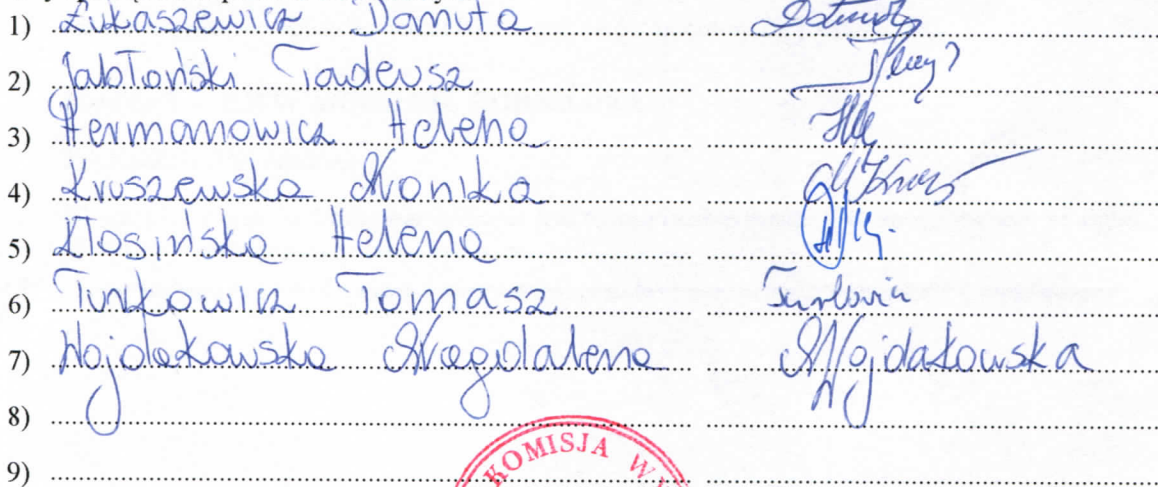 1) Łukaszewicz Danuta
2) Jabłoński Tadeusz
3) Hermanowicz Helena
4) Kruszewska Monika M Krusz
5) Kłosińska Helena
6) Tunkowicz Tomasz
7) Wojdakowska Magdalena MWojdakowska
8)
9)
KOMISJA